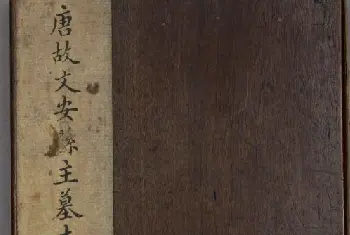 唐故文安縣主墓